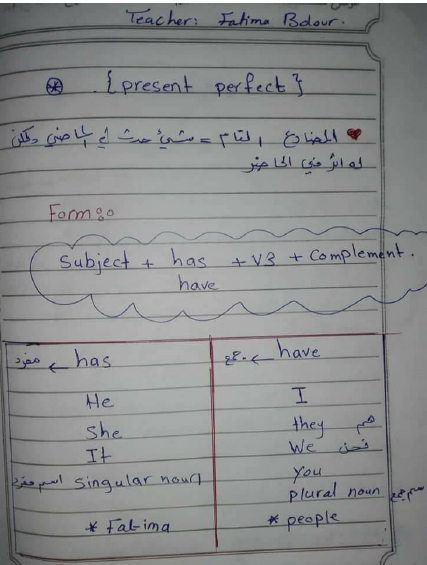 Teacher: Fatima Bdour.
⊛ {present perfect}
❤ المضارع التام = شيئ حدث في الماضي ولكن
له أثر في الحاضر
Form:
Subject + has + V3 + Complement.
have
مفرد ← has
جمع ← have
He
I
She
they هم
It
We نحن
Singular noun اسم مفرد
You
plural noun اسم جمع
* Fatima
* people